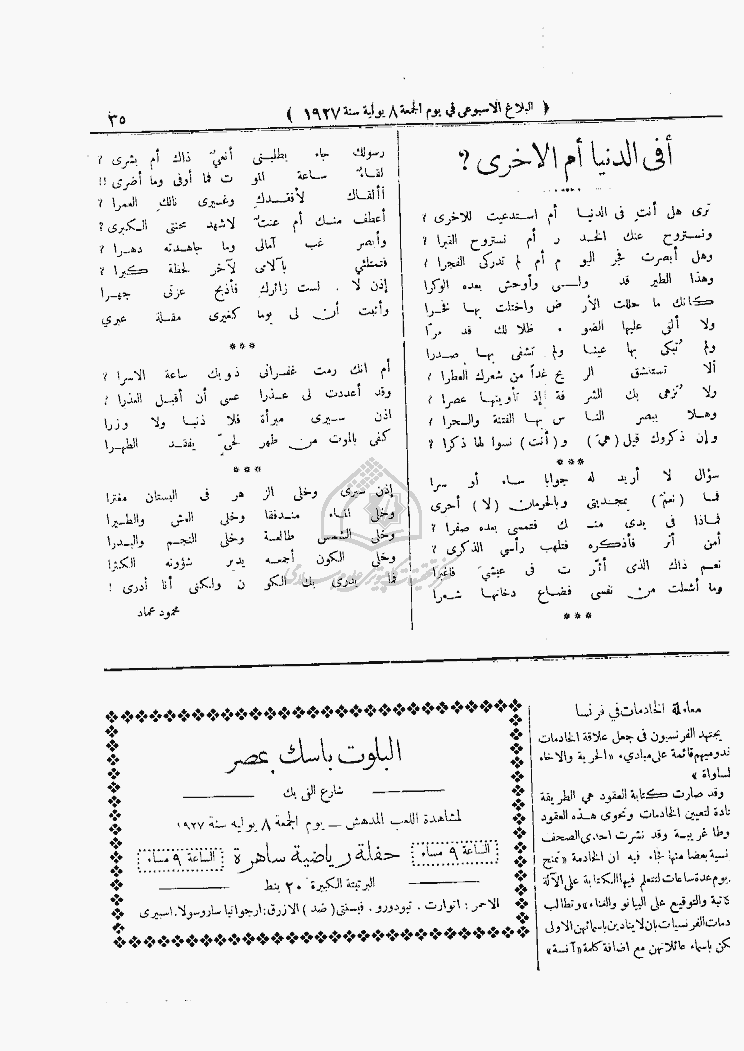 ﴿ البلاغ الاسبوعى في يوم الجمعة ٨ يولية سنة ١٩٢٧ ﴾
٣٥
أفى الدنيا أم الاخرى ؟
ترى هل أنت فى الدنيا أم استدعيت للاخرى ؟
ونستروح عنك الخلد ر أم نستروح القبرا ؟
وهل أبصرت فجر اليو م أم لم تدركى الفجرا ؟
وهذا الطير قد ولــى وأوحش بعده الوكرا
كأنك ما حللت الأر ض واختلت بها فخرا
ولا ألقى عليها الضو ء ظلا لك قد مرّا
ولم تبكى بها عينا ولم تشفى بها صدرا
ألا نستنشق الر يح غداً من شعرك العطرا ؟
ولا تُزهى بك الشر فة إذ تأوينها عصرا ؟
وهلا يبصر النا س بها الفتنة والسحرا ؟
وإن ذكروك قيل (هىَ) و (أنت) نسوا لها ذكرا ؟
***
سؤال لا أريد له جوابا ساء أو سرا
فما (نعمْ) بمجديتى وبالحرمان (لا) أحرى
فماذا فى يدى منـ ك فتمسى بعده صفرا ؟
أمن أثر فأذكره فتلهب رأسى الذكرى ؟
نعم ذاك الذى أثر ت فى عينىَّ فاغبرا
وما أشعلت من نفسى فضاع دخانها شعرا
***
رسولك جاء يطلبنى أنعىٌ ذاك أم بشرى ؟
لقاءٌ ساعة المو ت فما أوفى وما أضرى !!
أألقاك لأفقدك وغيرى نالك العمرا ؟
أعطف منك أم عنتٌ لاشهد محنتى الكبرى ؟
وأبصر غب آمالى وما جاهدته دهرا ؟
فتمتلئي بآلامى لآخر لحظة كبرا ؟
إذن لا . لست زائرك فأذبح عزتى جهرا
وأثبت أن لى يوما كغيرى مقلة عبرى
***
أم انك رمت غفرانى ذويك ساعة الاسرا ؟
وقد أعددت لى عذرا عسى أن أقبل العذرا ؟
اذن سيرى مبرأة فلا ذنبا ولا وزرا
كفى بالموت من طهر لحىّ يفقد الطهرا
***
إذن سيرى وخلى الز هر فى البستان مفترا
وخلى الماء مندفقا وخلى العش والطيرا
وخلى الشمس طالعة وخلى النجم والبدرا
وخلى الكون أجمعه يدير شؤونه الكثرا
فما يدرى بك الكو ن ولكنى أنا أدرى !
محمود عماد
معاملة الخادمات في فرنسا
يجتهد الفرنسيون فى جعل علاقة الخادمات
بمخدوميهم قائمة على مبادىء «الحرية والاخاء
لمساواة »
وقد صارت كتابة العقود هى الطريقة
تادة لتعيين الخادمات وتحوى هذه العقود
وطا غريبة وقد نشرت احدى الصحف
نسية بعضا منها فجاء فيه ان الخادمة «تمنح
يوم عدة ساعات لتتعلم فيها الكتابة على الآلة
كاتبة والتوقيع على البيانو والغناء» وتطالب
دمات الفرنسيات بان لا ينادين باسمائهن الاولى
كن باسماء عائلاتهن مع اضافة كلمة «آنسة»
البلوت باسك بمصر
شارع الفى بك
لمشاهدة اللعب المدهش – يوم الجمعة ٨ يوليه سنة ١٩٢٧
الساعة ٩ مساء حفلة رياضية ساهرة الساعة ٩ مساء
البرتيتة الكبيرة ٢٠ بنط
الاحمر: اتوارت . تيودورو . فيسنتى (ضد) الازرق: ارجوانيا ساروسولا . اسيرى